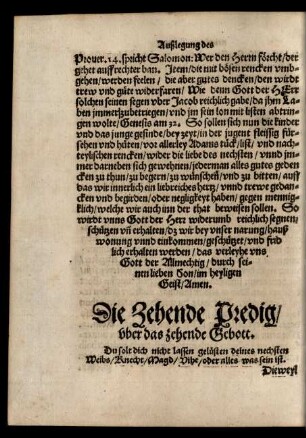 Außlegung des
Prouer. 14. spricht Salomon: Wer den Herrn förcht/der
gehet auff rechter ban. Item/die mit bösen rencken vmb-
gehen/werden feelen/ die aber gutes dencken/den wirdt
trew vnd güte widerfaren/ Wie denn Gott der HErr
solchen seinen segen vber Jacob reichlich gabe/da jhn La-
ban jmmerzu betriegen/vnd jm sein lon mit listen abtrin-
gen wolte/Genesis am 32. So sollen sich nun die kinder
vnd das junge gesinde/bey zeyt/in der jugent fleissig für-
sehen vnd hüten/vor allerley Adams tück/list/ vnd nach-
teylischen rencken/wider die liebe des nechsten/ vnnd jm-
mer darneben sich gewehnen/jederman alles gutes geden
cken zu thun/zu begern/zu wünschen/vnd zu bitten/ auff
das wir innerlich ein liebreiches hertz/ vnnd trewe gedan-
cken vnd begirden/oder negligkeyt haben/ gegen mennig-
klich/welche wir auch jnn der that beweisen sollen. So
wirdt vnns Gott der Herr widerumb reichlich segnen/
schützen vñ erhalten/dz wir bey vnser narung/hauß
wonung vnnd einkommen/geschützet/vnd frid
lich erhalten werden/ das verleyhe vns
Gott der Allmechtig/ durch sei-
nen lieben Son/im heyligen
Geist/Amen.
Die Zehende Predig/
vber das zehende Gebott.
Du solt dich nicht lassen gelüsten deines nechsten
Weibs/Knecht/Magd/Vihe/oder alles was sein ist.
Dieweyl